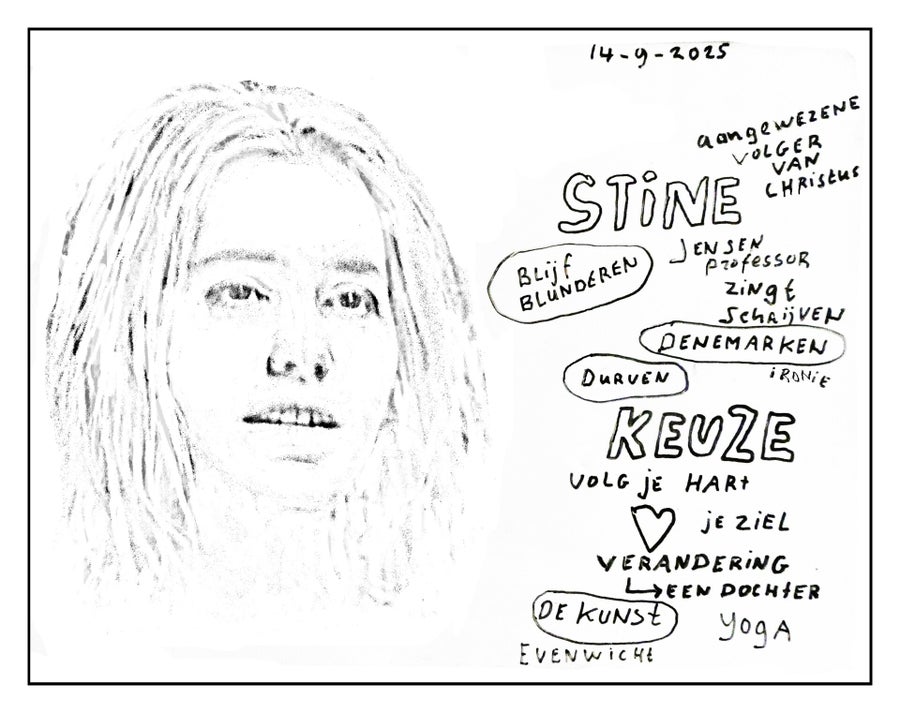 14-9-2025
aangewezene
volger
van
Christus
STiNE
Jensen
professor
Blijf
BLUNDEREN
zingt
schrijven
DENEMARKEN
iRONiE
DURVEN
KEUZE
VOLG je HARt
je ZiEL
VERANDERING
EEN DOCHTER
DE KUNSt
yogA
EVENWiCHt